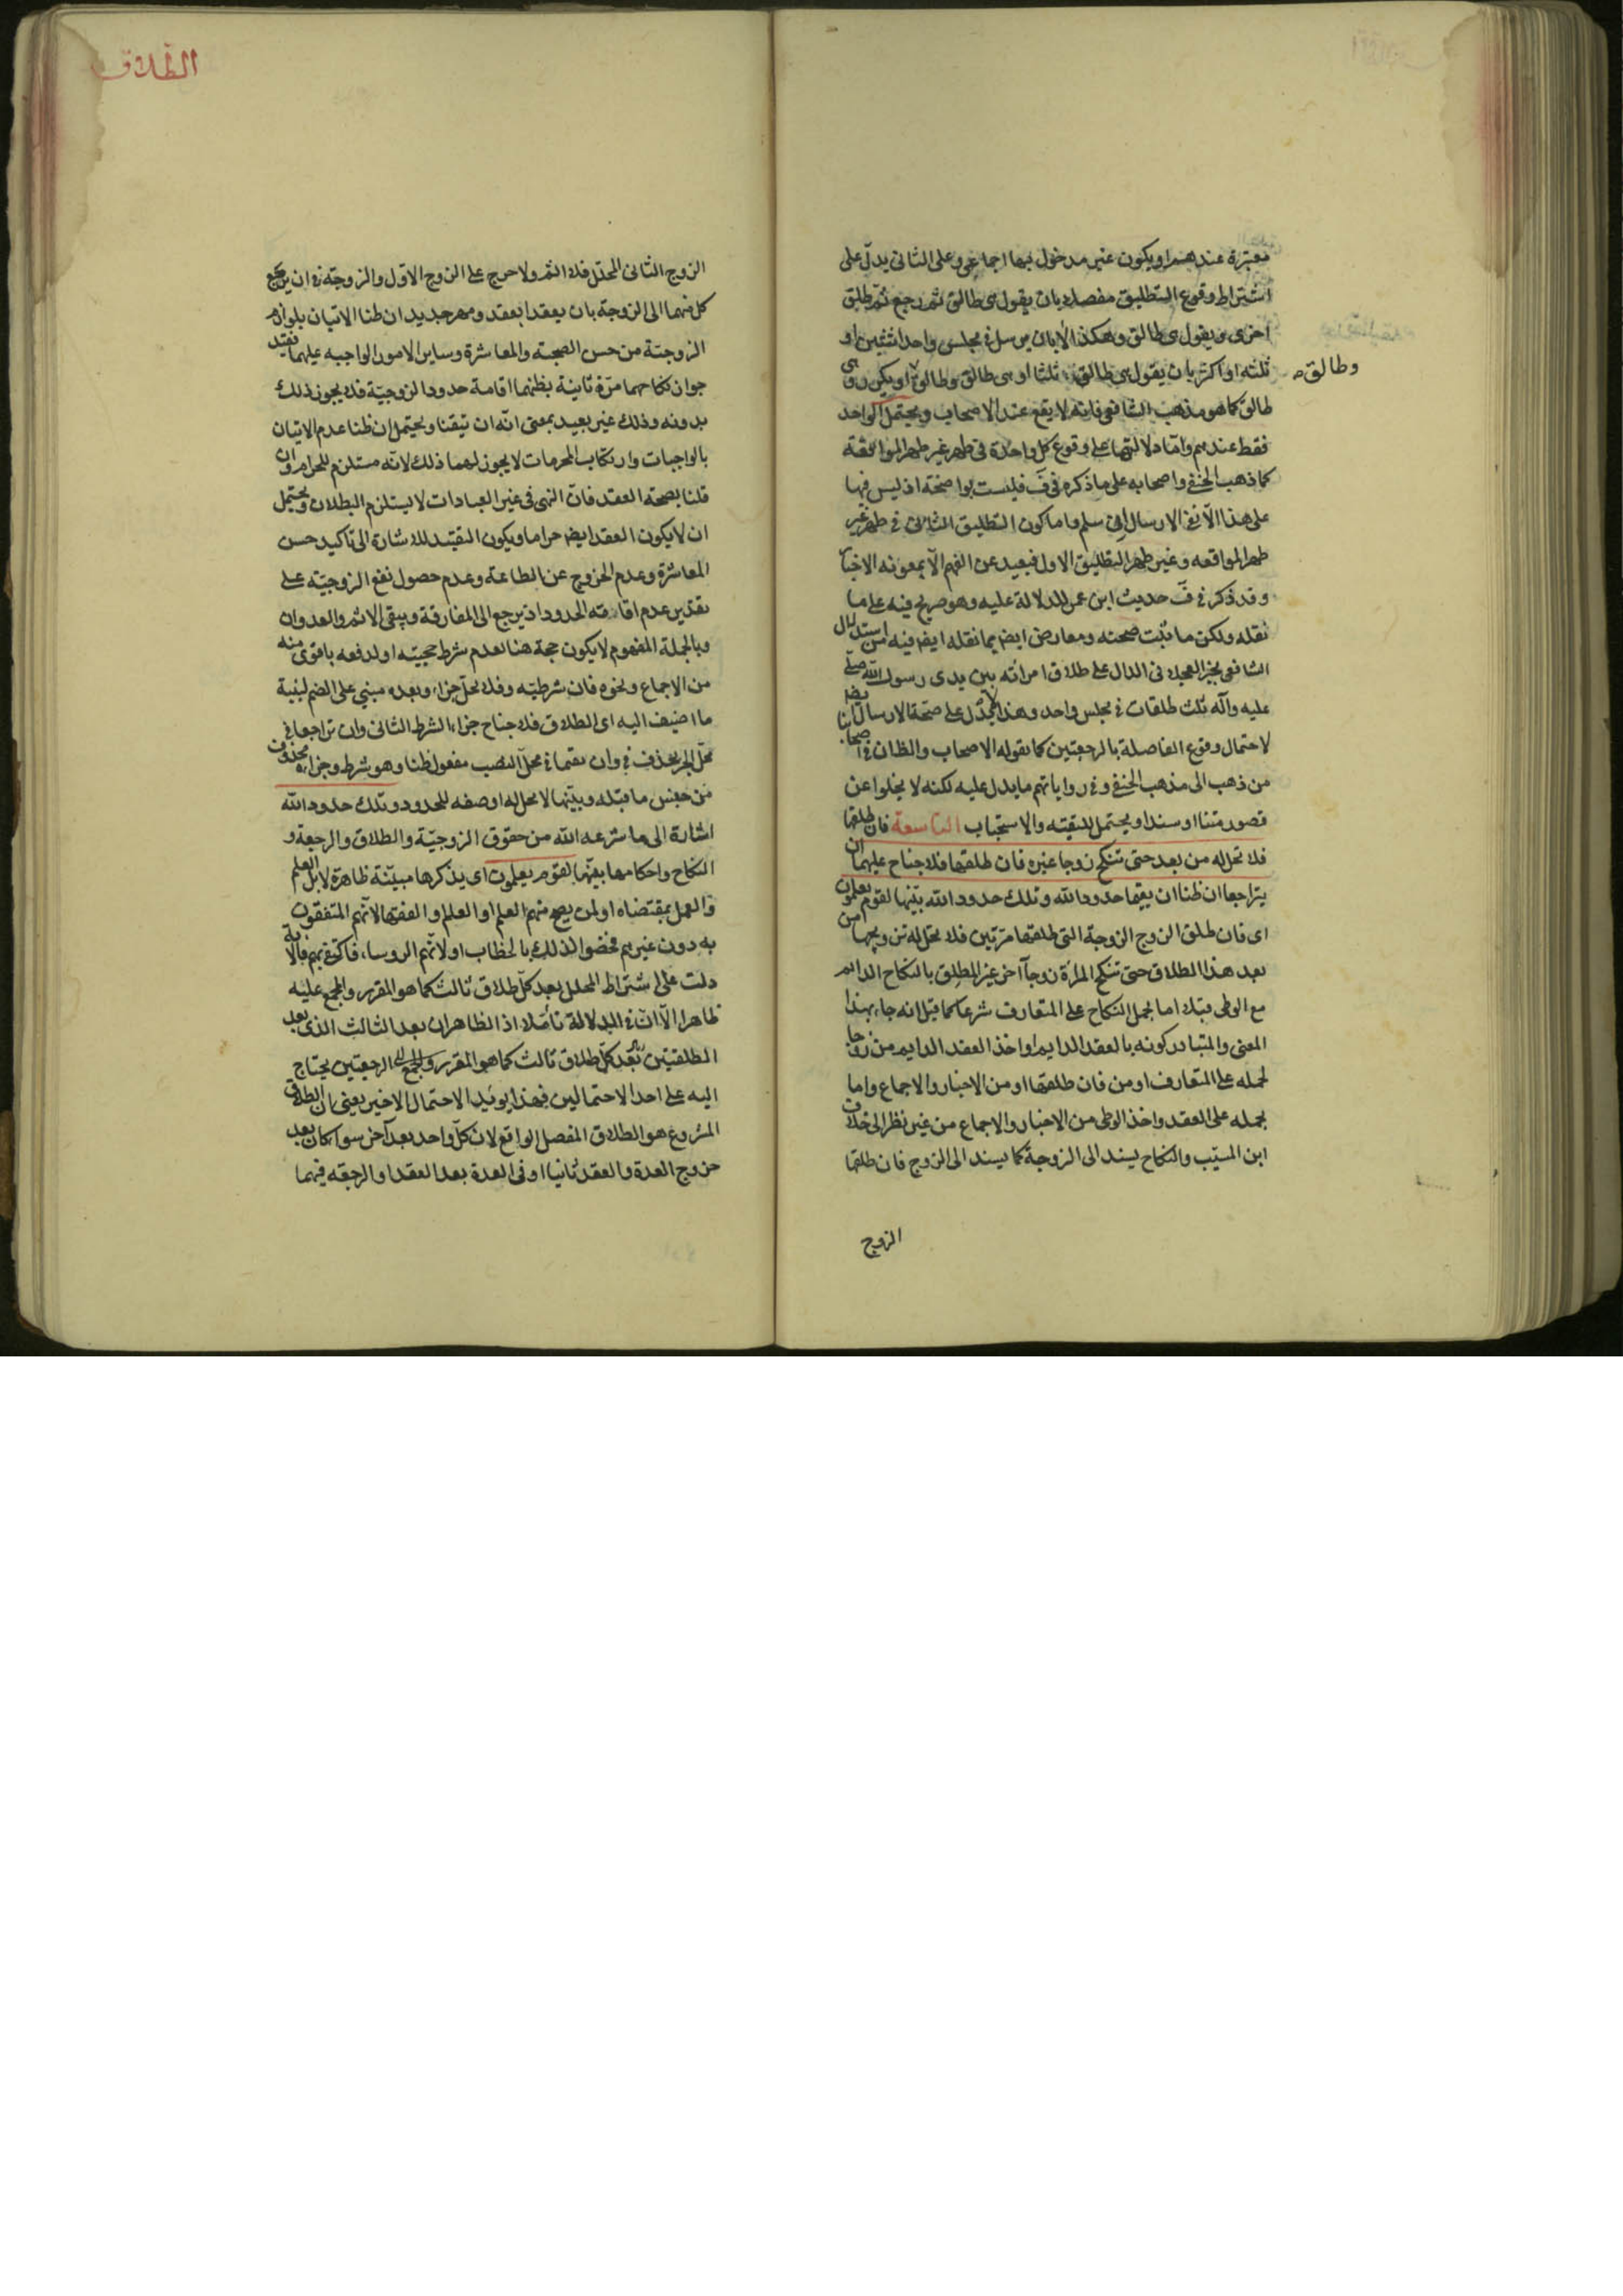 معتبرة عندهم او يكون غير مدخول بها اجماعي وعلى الثاني يدل على
اشتراط وقوع التطليق مفصلا بان يقول هي طالق ثم رجع ثم طلق
اخرى ويقول هي طالق وهكذا لا بان يرسل في مجلس واحد اثنين او
ثلثه او اكثر بان يقول هي طالق ثلثا او هي طالق وطالق او يكرر وهي
وطالق
طالق كما هو مذهب الشافعي فانه لا يقع عند الاصحاب ويحتمل الواحد
فقط عندهم واما دلالتها على وقوع كل واحدة في طهر غير طهر المواقعة
كما ذهب الحنفي واصحابه على ما ذكره في ف فليست بواضحة اذ ليس فيها
على هذا الا نفي الارسال ان سلم واما كون التطليق الثاني في طهر غير
طهر المواقعه وغير طهر التطليق الاول فبعيد عن الفهم الا بمعونه الاخبار
وقد ذكر في ف حديث ابن عمر للدلالة عليه وهو صريح فيه على ما
نقله ولكن ما ثبت صحته ومعارض ايضا بما نقله ايضا فيه من استدلال
الشافعي بخبر العجلاني الدال على طلاق امرأته بين يدي رسول الله صلى
عليه وآله ثلث طلقات في مجلس واحد وهذا لا يدل على صحة الارسال ايضا
لاحتمال وقوع الفاصلة بالرجعتين كما يقوله الاصحاب والظان في اصحابنا
من ذهب الى مذهب الحنفي وفي رواياتهم ما يدل عليه لكنه لا يخلوا عن
قصور متنا او سندا ويحتمل للتقيه والاستحباب التاسعة فان طلقها
فلا تحل له من بعد حتى تنكح زوجا غيره فان طلقها فلا جناح عليهما ان
يتراجعا ان ظنا ان يقيما حدود الله وتلك حدود الله يبينها لقوم يعلمون
اي فان طلق الزوج الزوجة التي طلقها مرتين فلا تحل له تزويجها من
بعد هذا الطلاق حتى تنكح المرأة زوجا آخر غير المطلق بالنكاح الدايم
مع الوطي قبلا اما بحمل النكاح على المتعارف شرعا كما قيل انه جاء بهذا
المعنى والمتبادر كونه بالعقد الدايم او اخذ العقد الدايم من زوجا
لحمله على المتعارف او من فان طلقها او من الاخبار والاجماع واما
بحمله على العقد واخذ الوطي من الاخبار والاجماع من غير نظر الى خلاف
ابن المسيب والنكاح يسند الى الزوجة كما يسند الى الزوج فان طلقها
الزوج
الطلاق
الزوج الثاني المحلل فلا اثم ولا حرج على الزوج الاول والزوجة في ان يرجع
كل منهما الى الزوجة بان يعقدا بعقد ومهر جديد ان ظنا الاتيان بلوازم
الزوجية من حسن الصحبة والمعاشرة وساير الامور الواجبه عليهما فقيد
جواز نكاحهما مرة ثانية بظنهما اقامة حدود الزوجية فلا يجوز ذلك
بدونه وذلك غير بعيد بمعنى انه ان تيقنا ويحتمل ان ظنا عدم الاتيان
بالواجبات وارتكاب المحرمات لا يجوز لهما ذلك لانه مستلزم للحرام وان
قلنا بصحة العقد فان النهي في غير العبادات لا يستلزم البطلان ويحتمل
ان لا يكون العقد ايضا حراما ويكون التقييد للاشارة الى تاكيد حسن
المعاشرة وعدم الخروج عن الطاعة وعدم حصول نفع الزوجية على
تقدير عدم اقامة الحدود اذ يرجع الى المفارقة ويبقى الاثم والعدوان
وبالجملة المفهوم لا يكون حجة هنا لعدم شرط حجيته او لدفعه باقوى منه
من الاجماع ونحوه فان شرطيه وفلا تحل جزاء وبعد مبني على الضم لنية
ما اضيف اليه اى الطلاق فلا جناح جزاء الشرط الثاني وان تراجعا في
محل الجر بحذف في وان يقيما في محل النصب مفعول ظنا وهو شرط وجزاءه محذوف
من جنس ما قبله ويبينها لا محل له او صفه للحدود وتلك حدود الله
اشارة الى ما شرعه الله من حقوق الزوجية والطلاق والرجعة و
النكاح واحكامها يبينها لقوم يعلمون اي يذكرها مبينة ظاهرة لاهل العلم
والعمل بمقتضاه او لمن يصح منهم العلم او العلم والفقها لانهم المتفقون
به دون غيرهم فخصوا لذلك بالخطاب او لانهم الروساء فاكتفى بهم فالاية
دلت على اشتراط المحلل بعد كل طلاق ثالث كما هو المقرر والمجمع عليه
ظاهرا الا ان في الدلالة تأملا اذ الظاهر ان بعد الثالث الذي بعد
المطلقتين بعد كل طلاق ثالث كما هو المقرر والمجمع الرجعتين يحتاج
اليه على احد الاحتمالين فهذا يويد الاحتمال الاخير يعني ان الطلاق
المشروع هو الطلاق المفصل الواقع لان كل واحد بعد آخر سواء كان بعد
خروج العدة والعقد ثانيا او في العدة بعد العقد او الرجعه فيهما